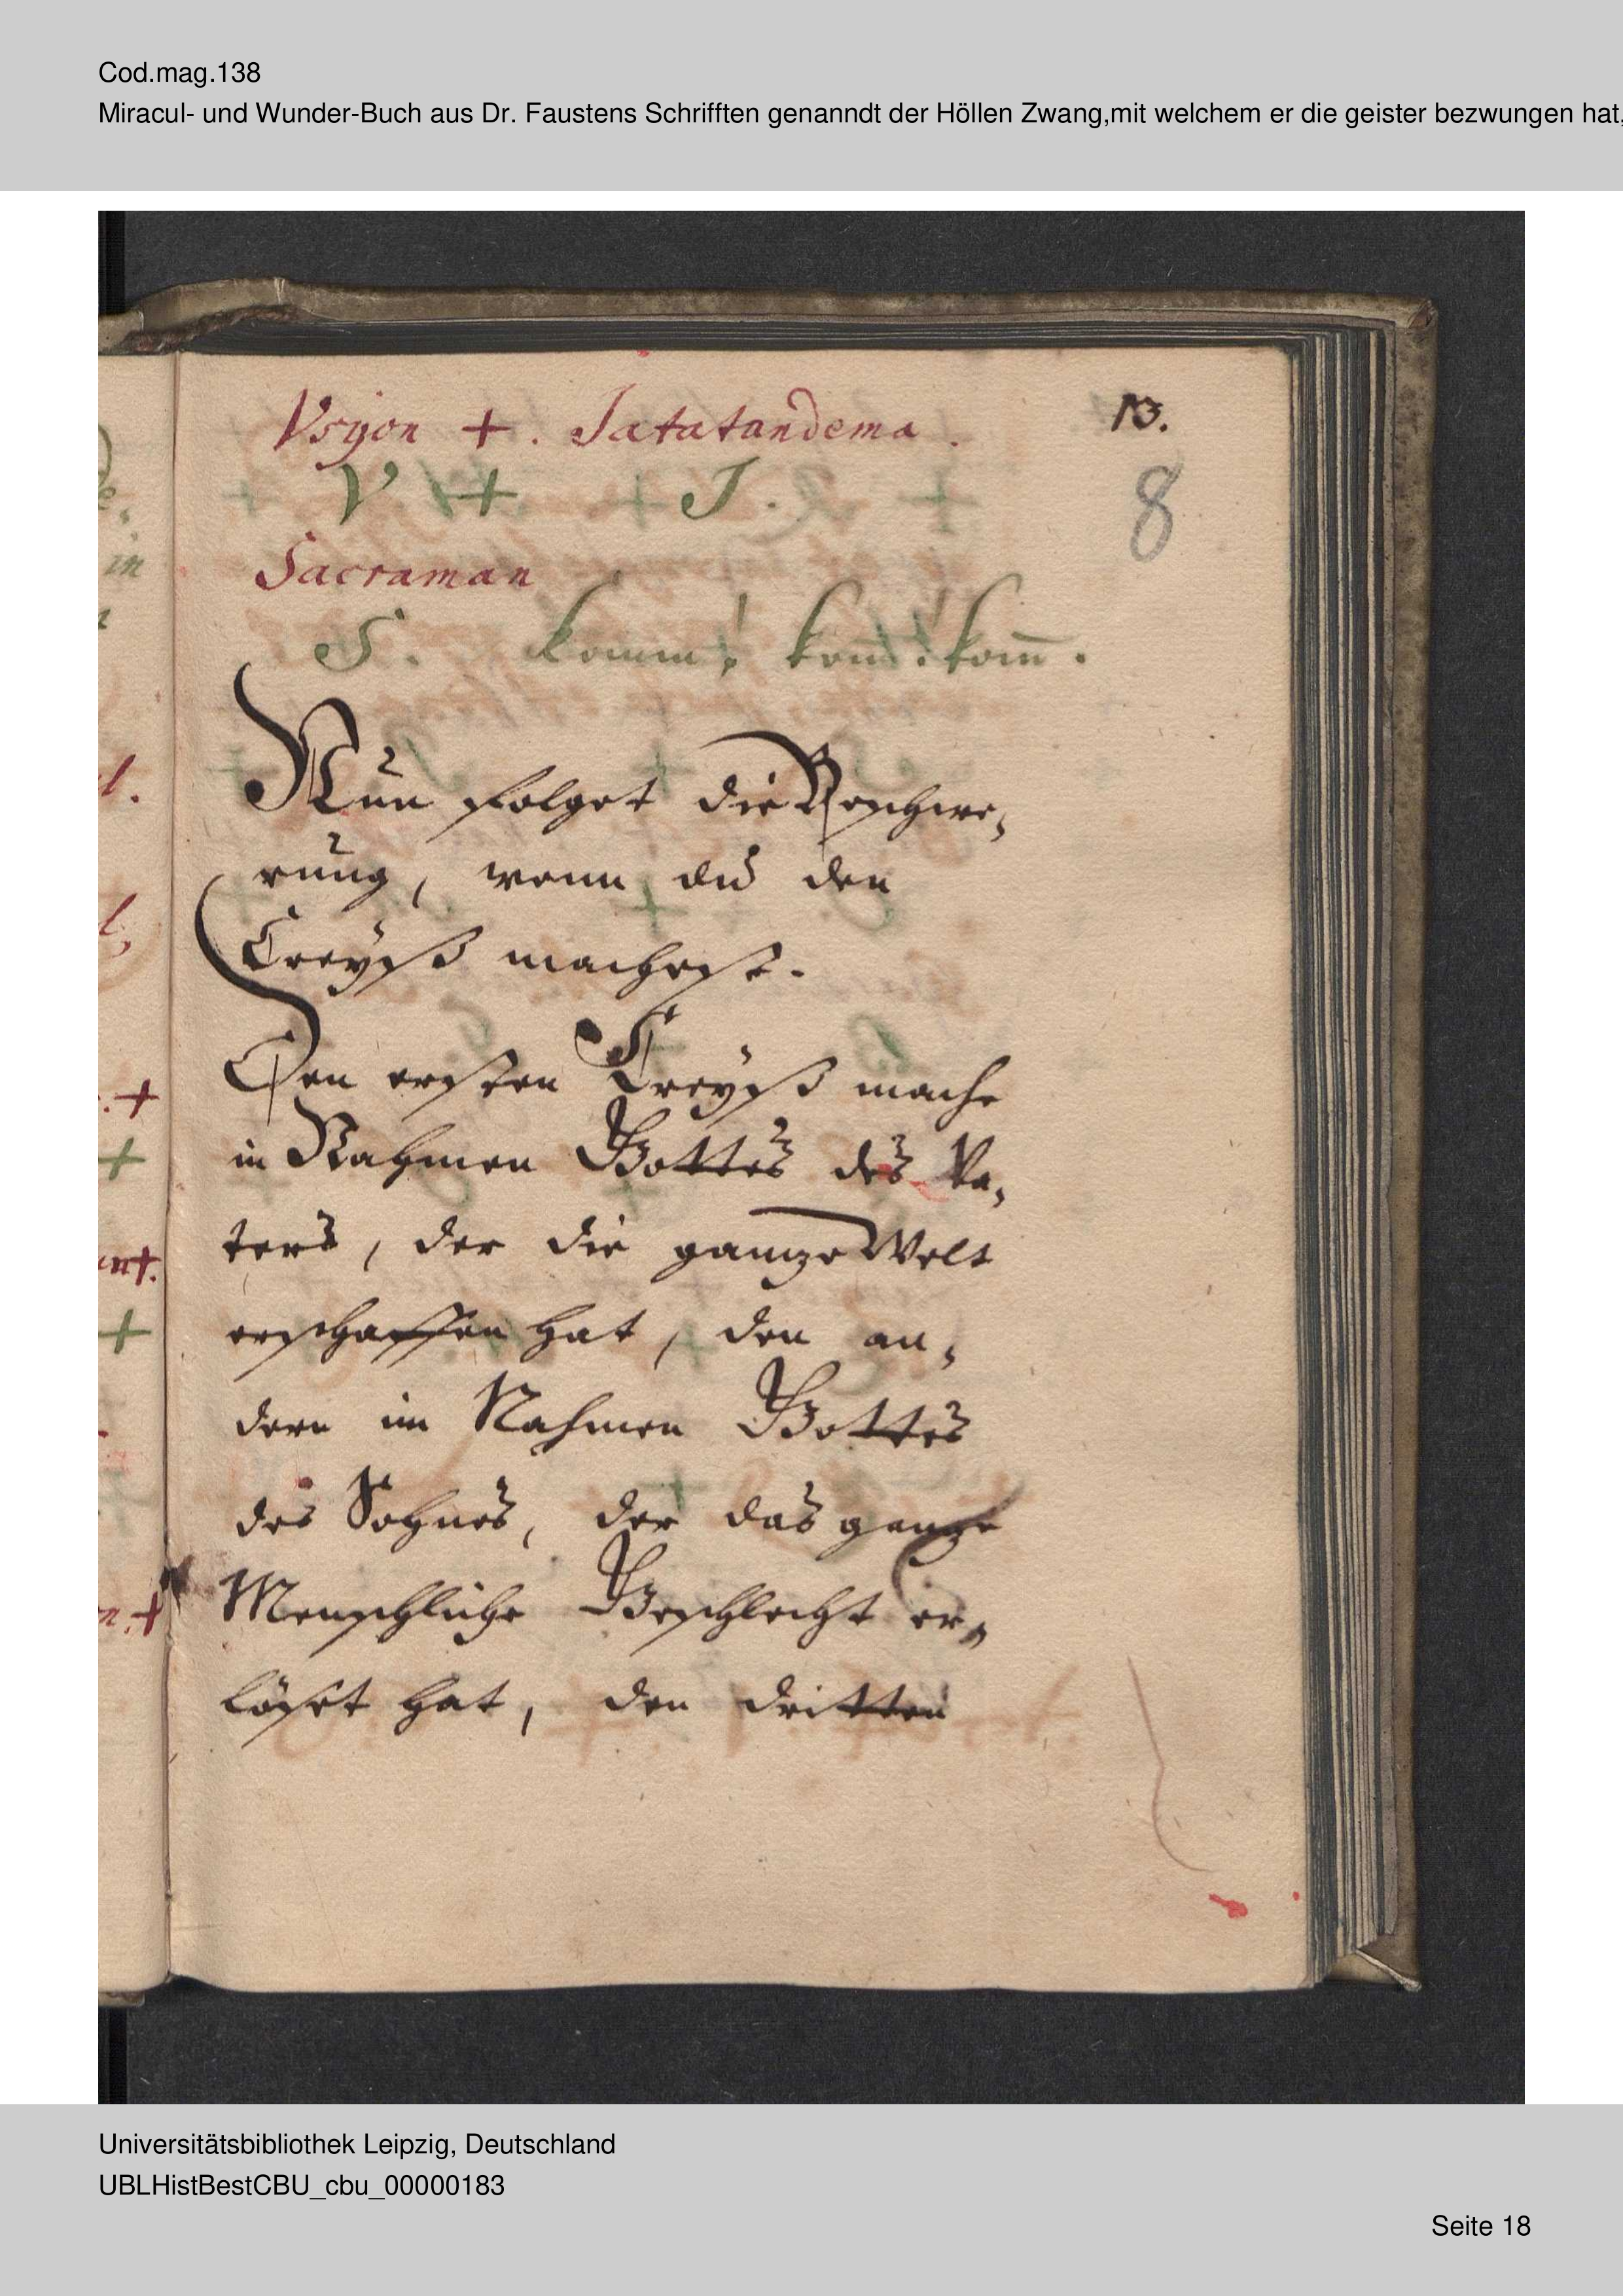 Cod.mag.138
Miracul- und Wunder-Buch aus Dr. Faustens Schrifften genanndt der Höllen Zwang,mit welchem er die geister bezwungen hat,
Vsyon +. Satatandema.
13.
V + + J. +
8
Sacraman
S. komm! kom̅! kom̅.
Nun folget die Beschwe,
rung, wenn du den
Creyß machest.
Den ersten Creyß mache
in Nahmen Gottes des Va,
ters, der die gantze Welt
erschaffen hat, den an,
dern im Nahmen Gottes
des Sohnes, der das gantze
Menschliche Geschlecht er,
löset hat, den dritten
Universitätsbibliothek Leipzig, Deutschland
UBLHistBestCBU_cbu_00000183
Seite 18